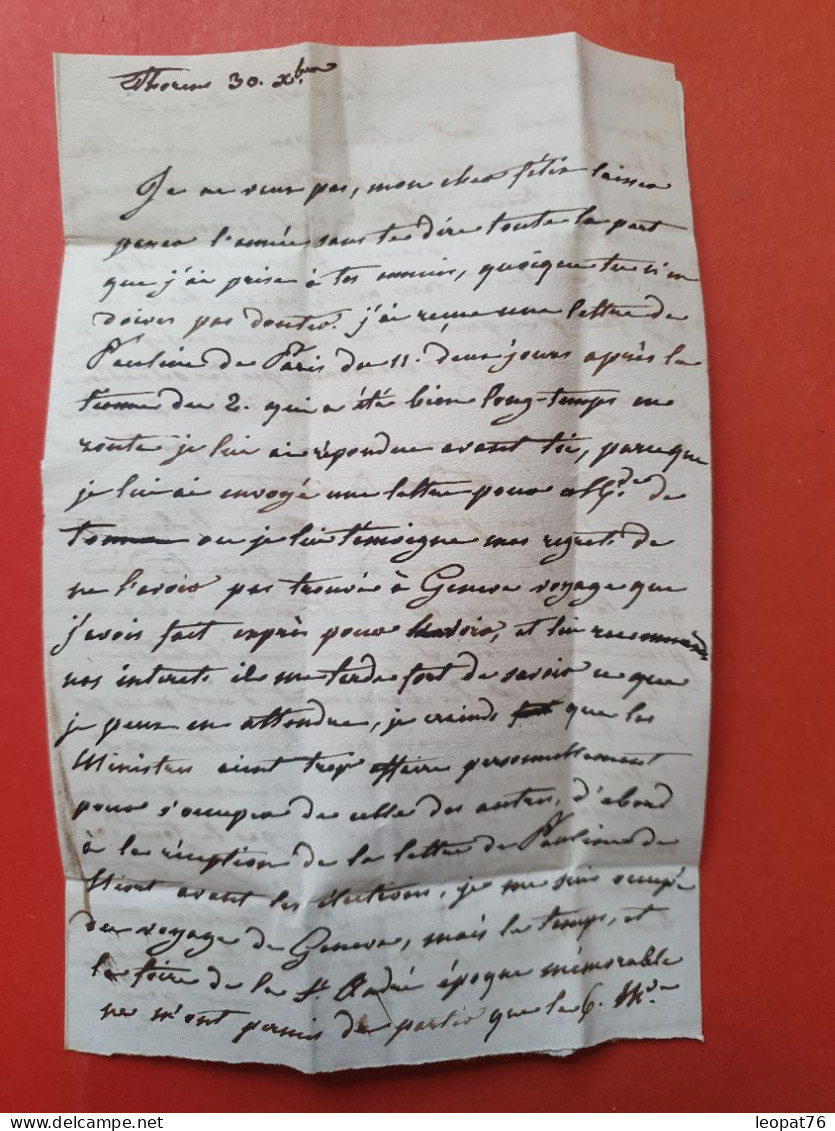 Thorens 30. Xbre
Je ne veux pas, mon cher félix laisser
passer l'année sans te dire toute la part
que j'ai prise à tes ennuis, quoique tu n'en
doives pas douter. j'ai reçue une lettre de
Pauline de Paris du 11. deux jours après la
tienne du 2. qui a été bien long-temps en
route je lui ai répondue avant toi, parceque
je lui ai envoyé une lettre pour de
ou je lui témoigne mes regrets de
ne l'avoir pas trouvée à Geneve voyage que
j'avois fait exprès pour la voir, et lui recommande
nos interets il me tarde fort de savoir ce que
je peux en attendre, je crains que les
Ministres aient trop affaire personnellement
pour s'occuper de celle des autres, d'abord
à la réception de la lettre de Pauline de
Niort avant les élections, je me suis occupé
du voyage de Geneve, mais le temps, et
la foire de la St. André époque mémorable
ne m'ont permis de partir que le 6. Mde
leopat76